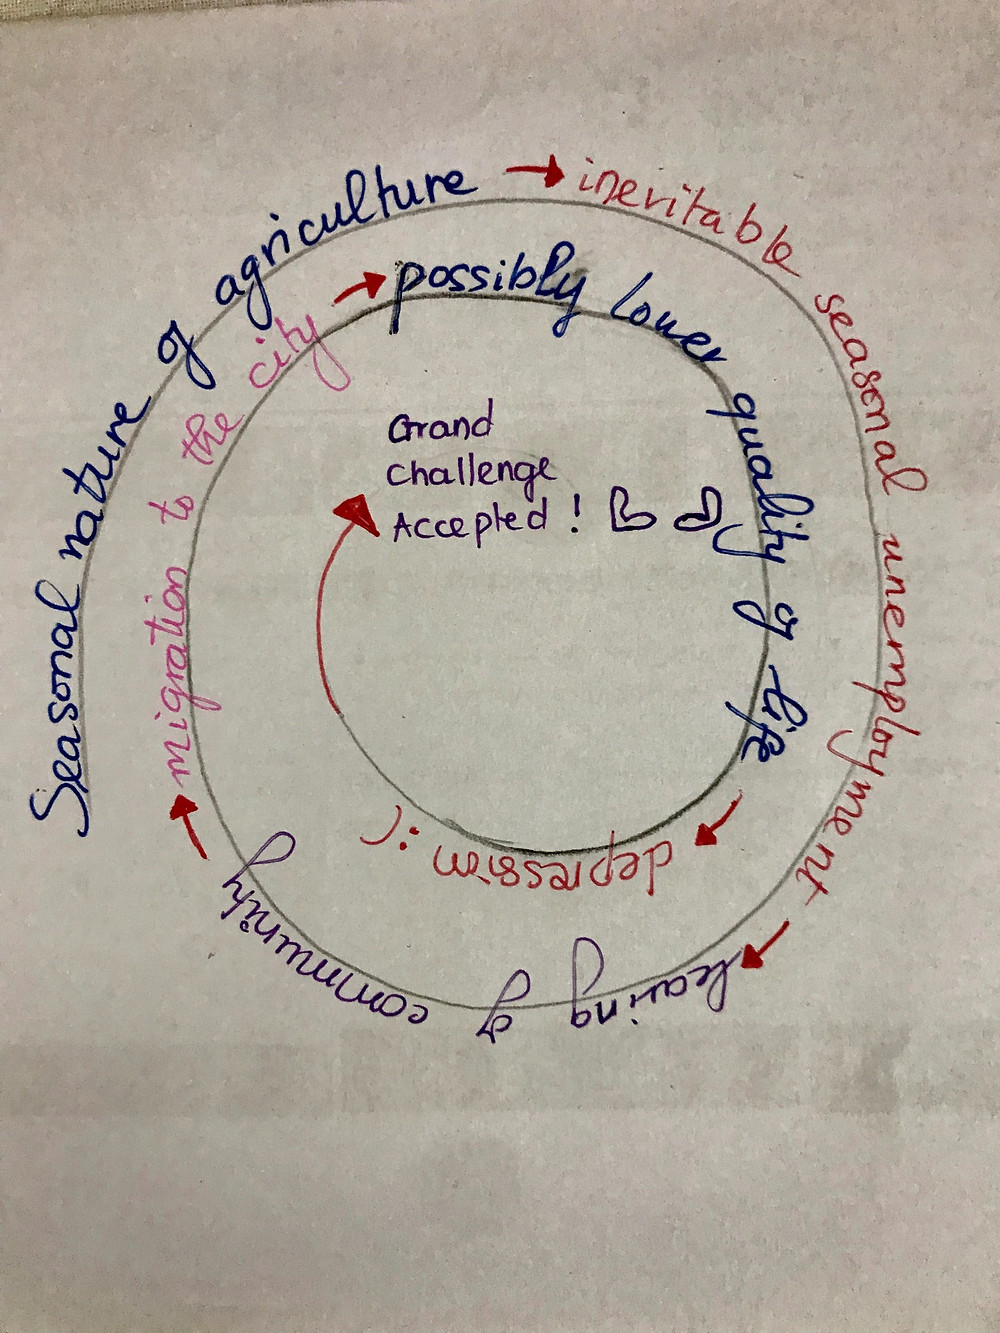 Seasonal nature of agriculture →
inevitable seasonal unemployment →
leaving of community →
migration to the city →
possibly lower quality of life →
depression :(
Grand
Challenge
Accepted !